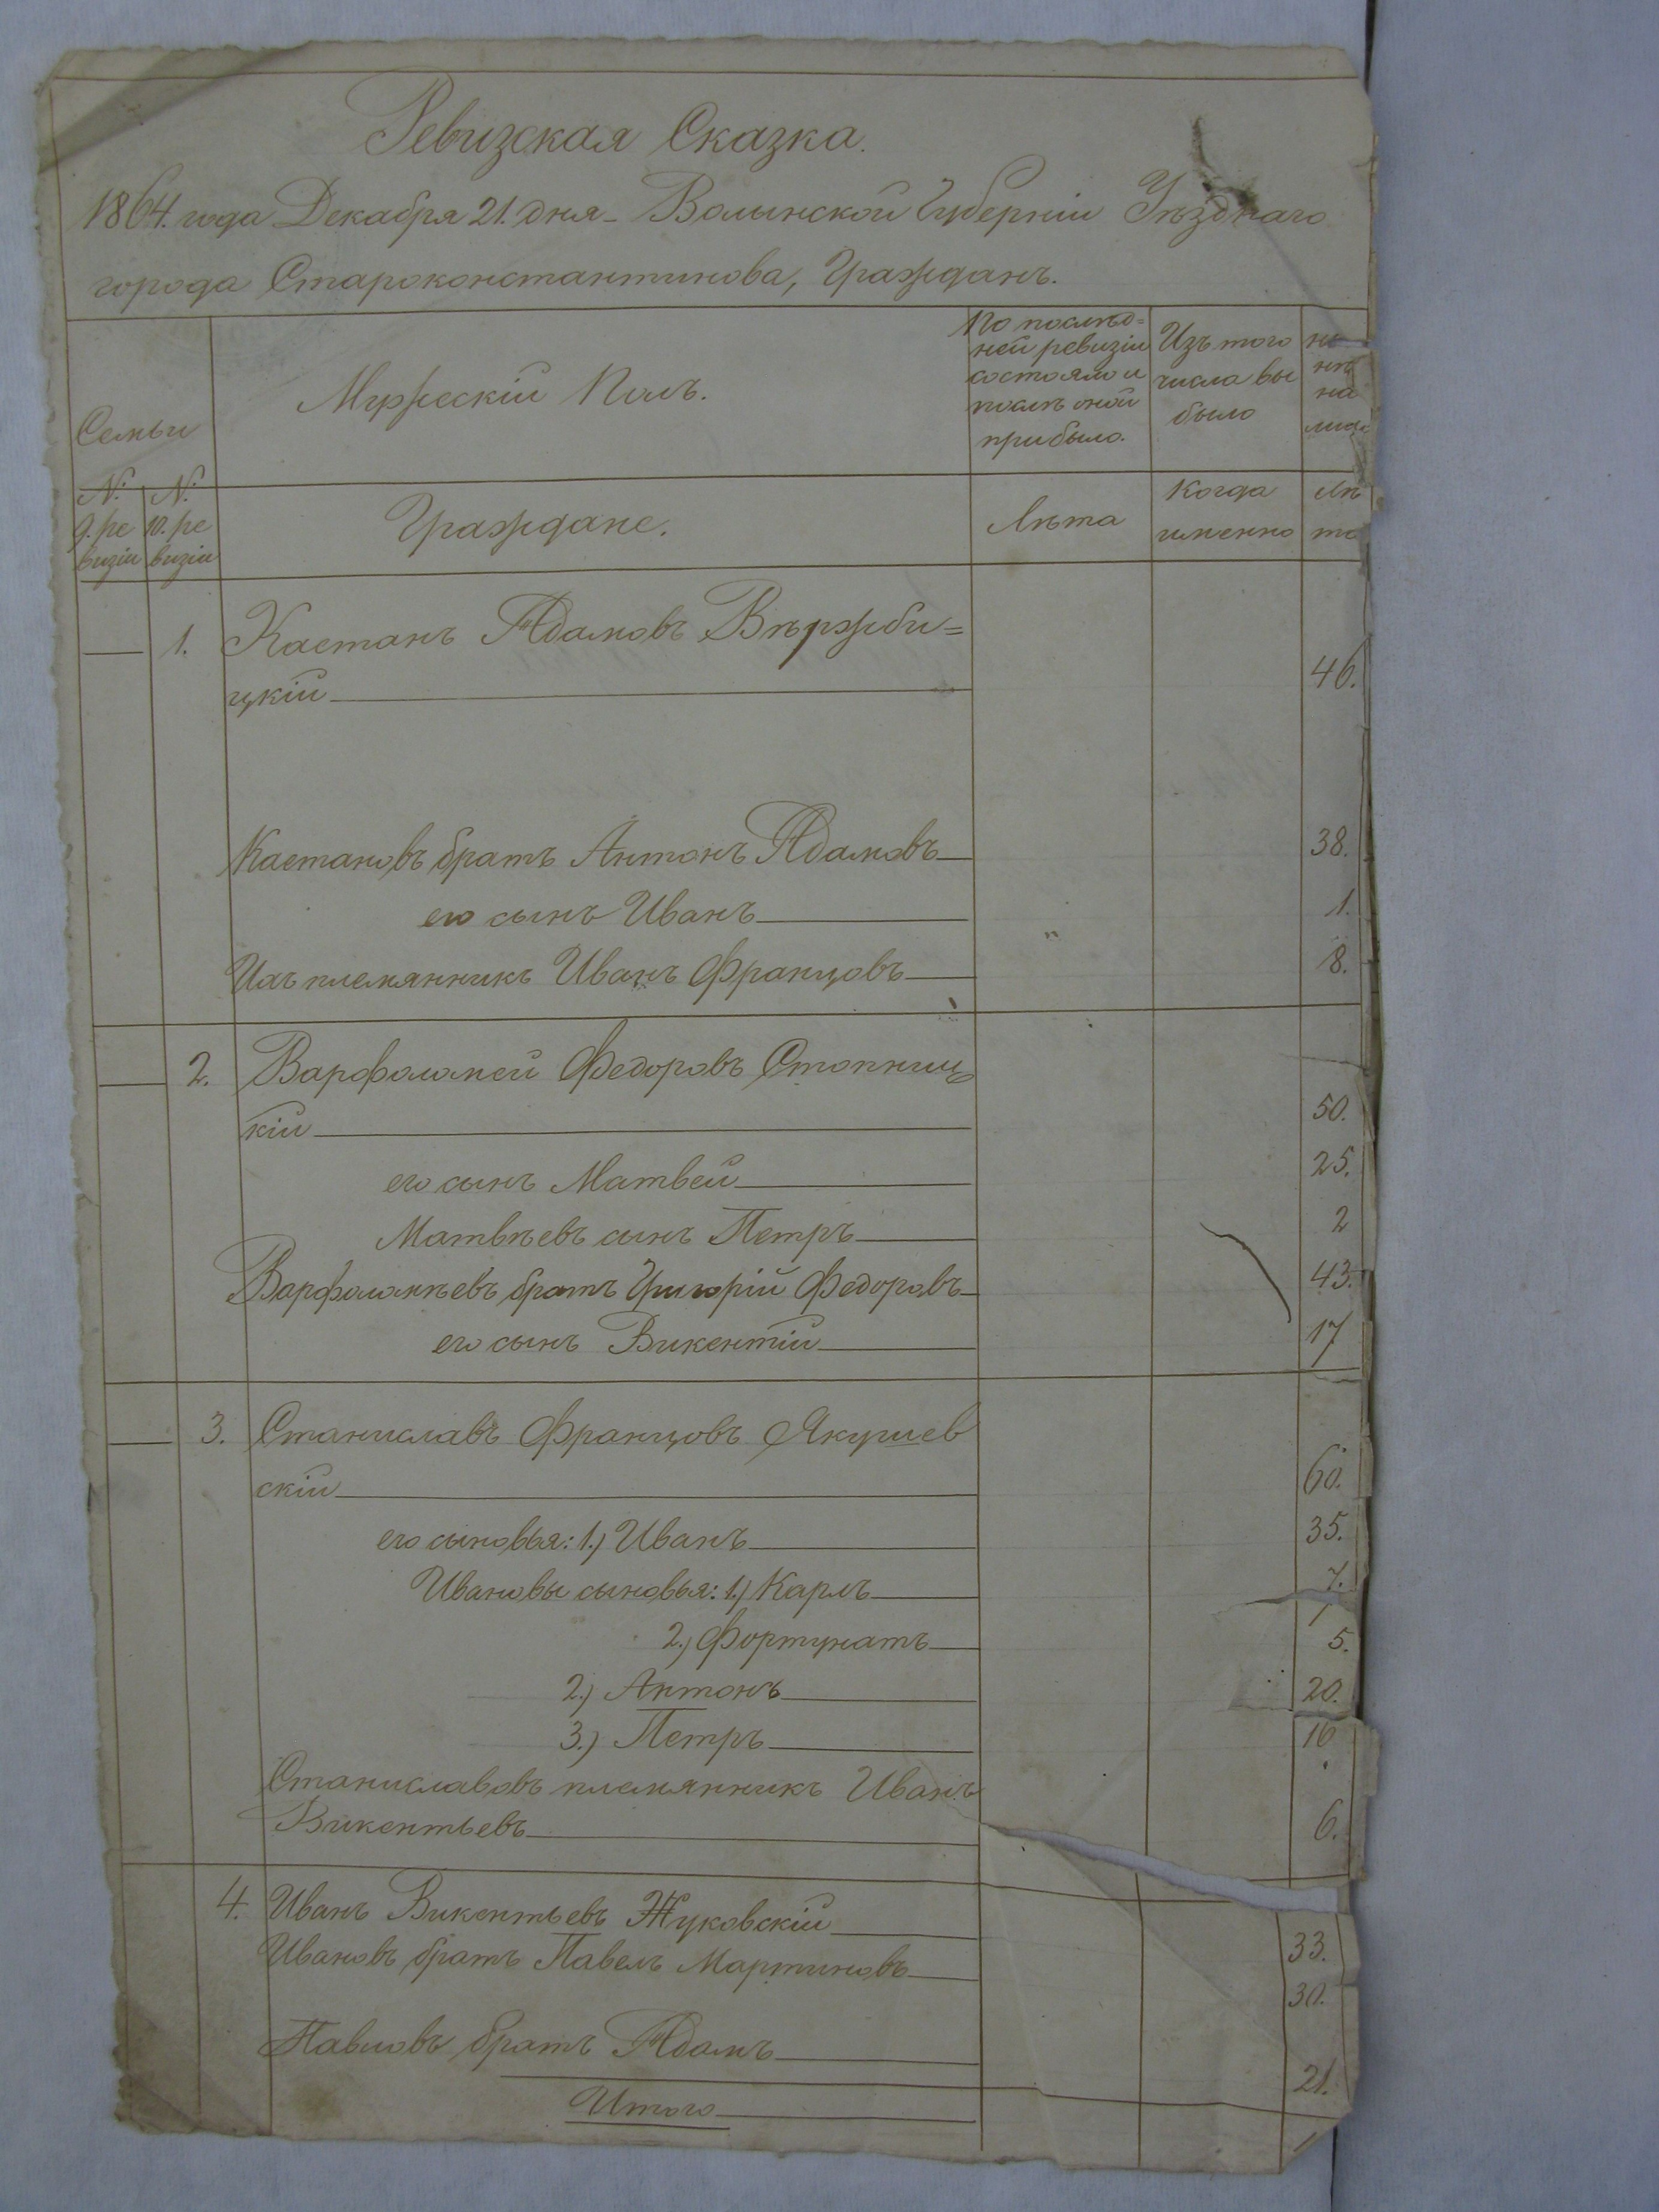 Ревизская Сказка.
1864. года Декабря 21. дня - Волынской Губерніи Уѣзднаго
города Староконстантинова, Гражданъ.
Семьи
Мужескій Полъ.
По послѣд=
ней ревизіи
состояло и
послѣ оной
прибыло.
Изъ того
числа вы
было
нѣ
на
лиц
№: 9. ре визіи
№: 10. ре визіи
Граждане.
Лѣта
Когда
именно
Лѣ
та
1. Каетанъ Адамовъ Вѣржби=
цкій 46.
Каетановъ братъ Антонъ Адамовъ 38.
его сынъ Иванъ 1.
Ихъ племянникъ Иванъ Францовъ 8.
2. Варфоломей Федоровъ Стопниц
кій 50.
его сынъ Матвей 25.
Матвѣевъ сынъ Петръ 2
Варфоломѣевъ братъ Григорій Федоровъ 43.
его сынъ Викентій 17
3. Станиславъ Францовъ Якушев
скій 60.
его сыновья: 1.) Иванъ 35.
Ивановы сыновья: 1.) Карлъ 7.
2.) Фортунатъ 5.
2.) Антонъ 20.
3.) Петръ 16
Станиславовъ племянникъ Иванъ
Викентьевъ 6.
4. Иванъ Викентьевъ Жуковскій 33.
Ивановъ братъ Павелъ Мартиновъ 30.
Павловъ братъ Адамъ 21.
Итого